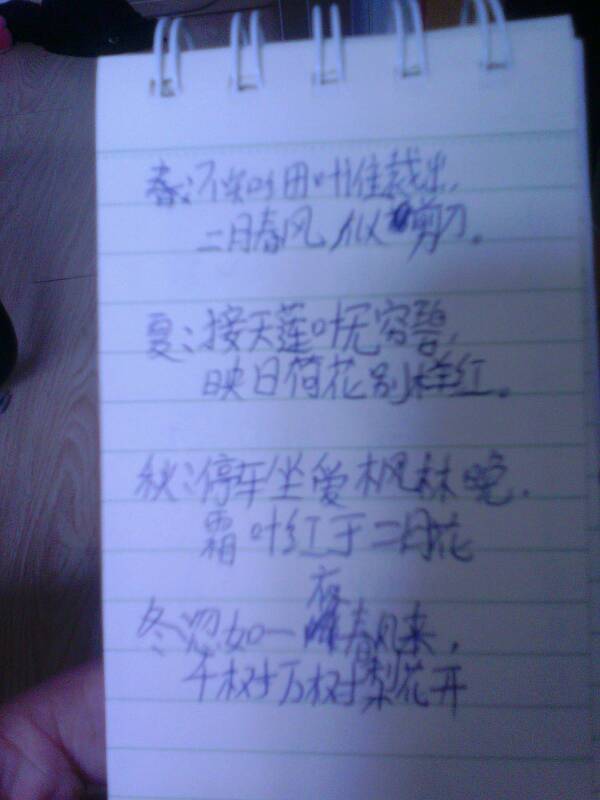 春:不知叶田叶谁裁出,
二月春风似剪刀。
夏:接天莲叶无穷碧,
映日荷花别样红。
秋:停车坐爱枫林晚.
霜叶红于二月花
冬:忽如一夜春风来,
千树万树梨花开